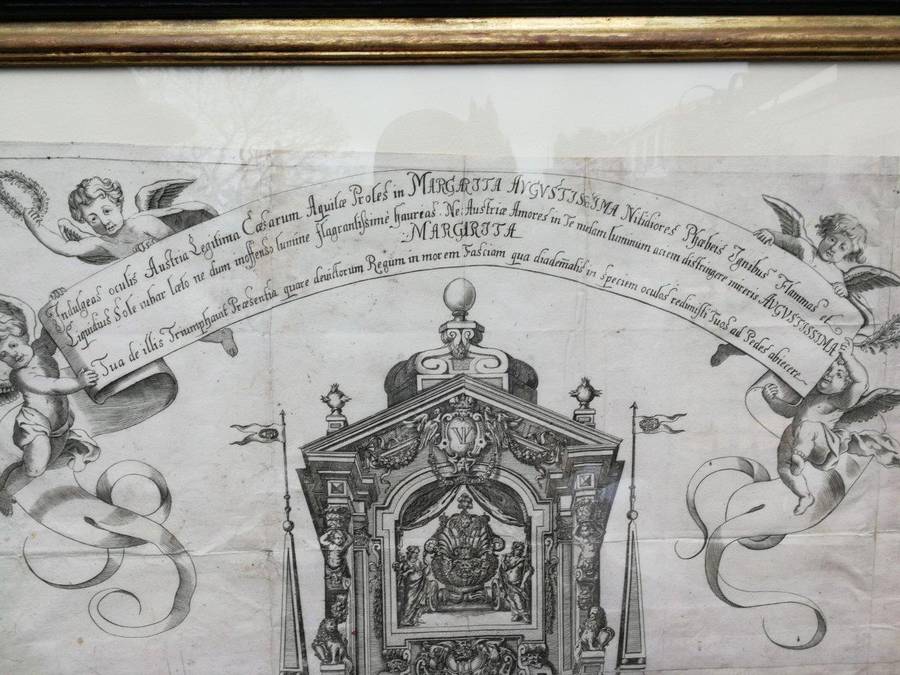 Indulgeas oculis Austria Legitima Cæsarum Aquilæ Proles in MARGARITA AVGVSTISSIMA Nitidiores Phæbeis Ignibus Flammas et
Limpidius Sole iubar læto ne dum inoffenso lumine flagrantissimè haureas. Ne Austriæ Amores in Te nudam luminum aciem distringere AVGVSTISSIMA
MARGARITA
Tua de illis Triumphant Præsentia quare deuictorum Regum in morem Fasciam qua in speciem oculos redimisti Tuos ad Pedes abiecere